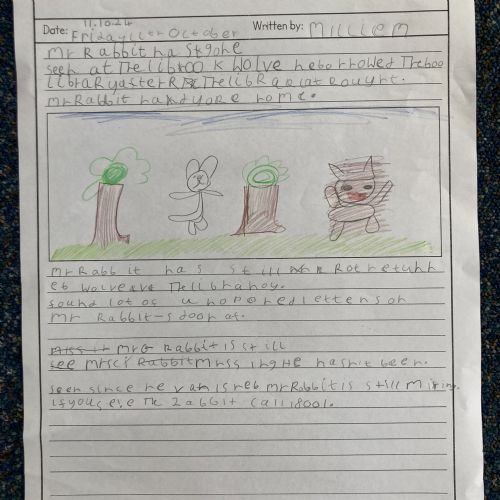 11.10.24
Date: Friday 11th October Written by: Millie M
Mr Rabbit has gone
Seen at The libr00 k Wolve he borrowed The boo
library after The library
Mr Rabbit had gone home.
Mr Rabb it has still not return
ed Wolves The library.
found lot of unopened letters on
Mr Rabbit-s door
Miss it Mr Rabbit is still
see Mrsci Rabbit Miss ing He hasn't been.
Seen since he vanished Mr Rabbit is still Missing.
if you see The rabbit call 18001.